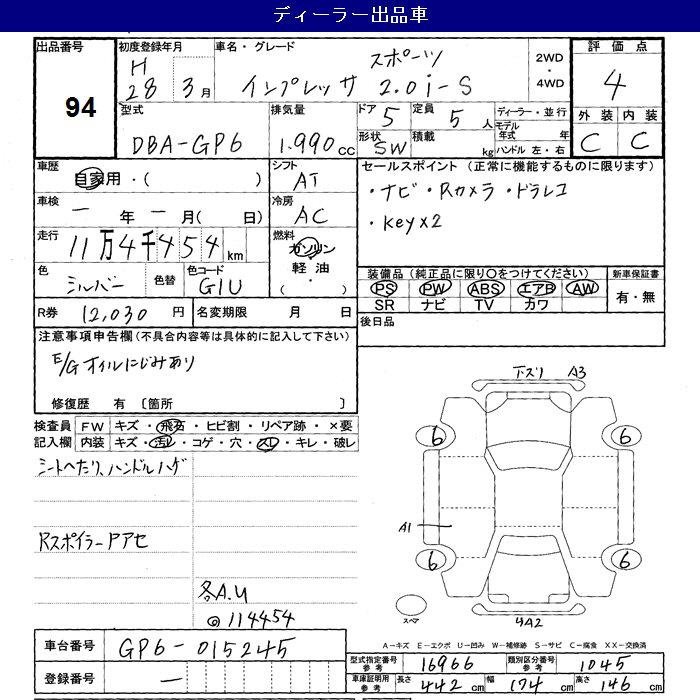 ディーラー出品車
出品番号 94
初度登録年月 H 28 年 3月
車名・グレード インプレッサ スポーツ 2.0i-S
2WD ・ 4WD
評価点 4
外装 C 内装 C
型式 DBA-GP6
排気量 1.990cc
ドア 5 定員 5人
形状 SW 積載 kg
ディーラー・並行
モデル年式 年
ハンドル 左・右
車歴 自家用・( )
シフト AT
セールスポイント (正常に機能するものに限ります)
・ナビ・Rカメラ・ドラレコ
・Key×2
車検 ー年ー月(日)
冷房 AC
走行 11万4千454km
燃料 ガソリン 軽油 ( ・ )
色 シルバー 色替 色コード G1U
装備品 (純正品に限り○をつけてください)
PS PW ABS エアB AW
SR ナビ TV カワ
新車保証書 有・無
R券 12,030円 名変期限 月 日
後日品
注意事項申告欄 (不具合内容等は具体的に記入して下さい)
E/Gオイルにじみあり
修復歴 有 〔箇所 〕
検査員記入欄 FW キズ・飛石・ヒビ割・リペア跡・×要
内装 キズ・汚レ・コゲ・穴・スレ・キレ・破レ
シートへたり、ハンドルハゲ
Rスポイラー アアセ
各A.U
◎114454
下ズリ A3
6 6
A1
6 6
スペア
4A2
A－キズ E－エクボ U－凹み W－補修跡 S－サビ C－腐食 XX－交換済
車台番号 GP6-015245
登録番号 ー
型式指定番号 参考 16966 類別区分番号 参考 1045
車庫証明用 参考 長さ 442cm 幅 174cm 高さ 146cm